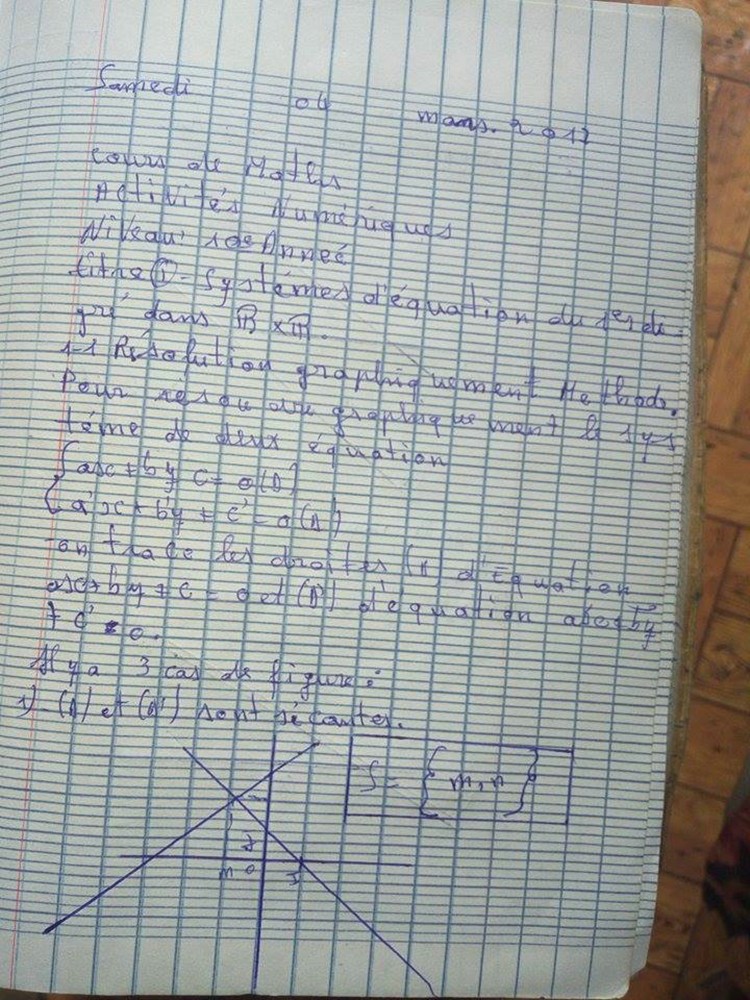 Samedi 04 mars. 2017
Cours de Maths
Activités Numériques
Niveau: 1ère Année
titre ① - Systémes d'équation du 1er de-
gré dans R x R.
1-1 Résolution graphiquement Methode.
Pour résoudre graphiquement le sys
téme de deux équation
{ ax + by C = 0 (D)
{ a'x + b'y + c' = 0 (D')
on trace les droites (D) d'Equation
ax + by + c = 0 et (D') d'équation
+ c' = 0.
Il y a 3 cas de figure :
1) - (D) et (D') sont sécantes.
S = { m, n }
m o J